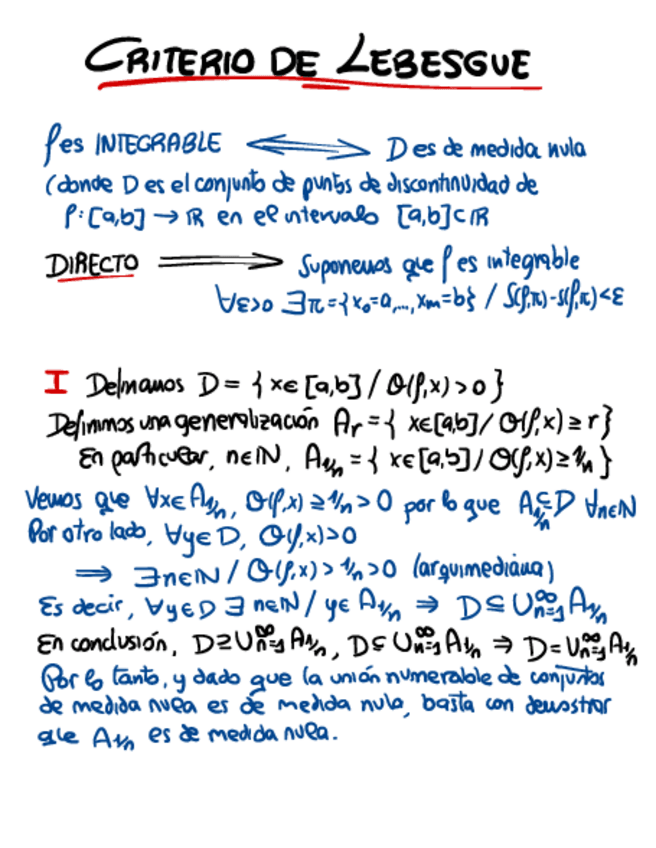 CRITERIO DE LEBESGUE
f es INTEGRABLE ⟺ D es de medida nula
(donde D es el conjunto de puntos de discontinuidad de
f: [a,b] → ℝ en el intervalo [a,b] ⊂ ℝ
DIRECTO ⟹ Suponemos que f es integrable
∀ε>0 ∃π = {x₀=a,..., xₘ=b} / S(f,π)-s(f,π)<ε
I Definamos D = { x∈[a,b] / O(f,x) > 0 }
Definimos una generalización Aᵣ = { x∈[a,b] / O(f,x) ≥ r }
En particular, n∈ℕ, A₁/ₙ = { x∈[a,b] / O(f,x) ≥ 1/n }
Vemos que ∀x∈A₁/ₙ, O(f,x) ≥ 1/n > 0 por lo que A₁/ₙ ⊆ D ∀n∈ℕ
Por otro lado, ∀y∈D, O(f,x)>0
⟹ ∃n∈ℕ / O(f,x) > 1/n > 0 (arquimediana)
Es decir, ∀y∈D ∃ n∈ℕ / y∈ A₁/ₙ ⟹ D ⊆ ∪ₙ₌₁^∞ A₁/ₙ
En conclusión, D ⊇ ∪ₙ₌₁^∞ A₁/ₙ, D ⊆ ∪ₙ₌₁^∞ A₁/ₙ ⟹ D = ∪ₙ₌₁^∞ A₁/ₙ
Por lo tanto, y dado que la unión numerable de conjuntos
de medida nula es de medida nula, basta con demostrar
que A₁/ₙ es de medida nula.